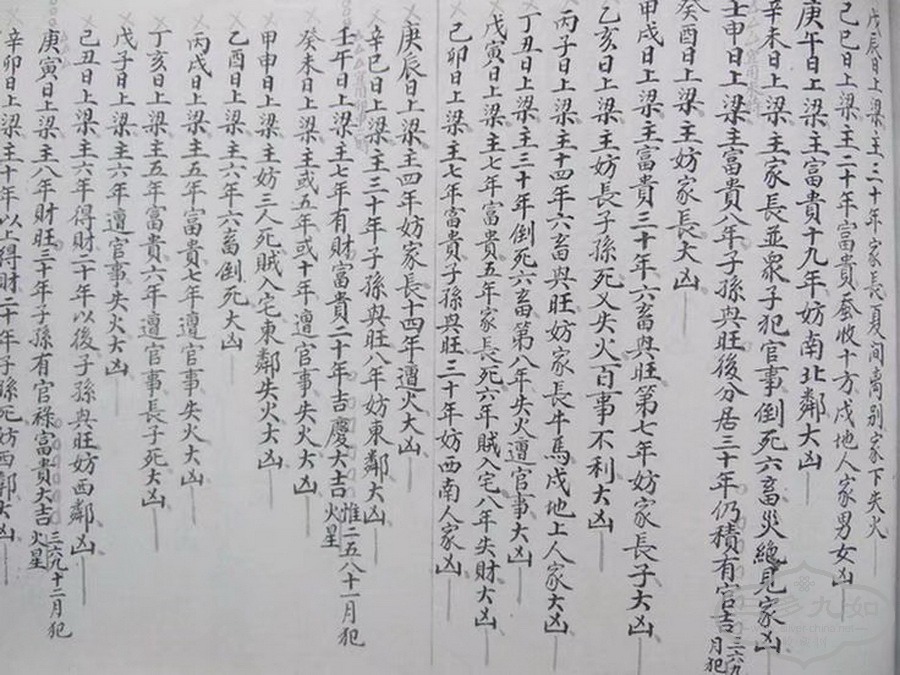 戊辰日上梁主三十年家長夏间离别家下失火
己巳日上梁主二十年富貴蚕收十方戌地人家男女凶
庚午日上梁主富貴十九年妨南北鄰大凶
辛未日上梁主家長並眾子犯官事倒死六畜災絕見家凶
壬申日上梁主富貴八年子孫興旺後分居三十年仍積有官吉 三六九月犯
癸酉日上梁主妨家長大凶
甲戌日上梁主富貴三十年六畜興旺第七年妨家長子大凶
乙亥日上梁主妨長子孫死又失火百事不利大凶
丙子日上梁主十四年六畜興旺妨家長牛馬戌地上人家大凶
丁丑日上梁主三十年倒死六畜第八年失火遭官事大凶
戊寅日上梁主七年富貴五年家長死六年賊入宅八年失財大凶
己卯日上梁主七年富貴子孫興旺三十年妨西南人家凶
庚辰日上梁主四年妨家長十四年遭火大凶
辛巳日上梁主三十年子孫興旺八年妨東鄰大凶
壬午日上梁主七年有財富貴二十年吉慶大吉 惟二五八十一月犯火星
癸未日上梁主或五年或十年遭官事失火大凶
甲申日上梁主妨三人死賊入宅東鄰失火大凶
乙酉日上梁主六年六畜倒死大凶
丙戌日上梁主五年富貴七年遭官事失火大凶
丁亥日上梁主五年富貴六年遭官事長子死大凶
戊子日上梁主六年遭官事失火大凶
己丑日上梁主六年得財二十年以後子孫興旺妨西鄰凶
庚寅日上梁主八年財旺三十年子孫有官祿富貴大吉 三六九十二月犯火星
辛卯日上梁主十年以上得財二十年子孫死妨西鄰大凶